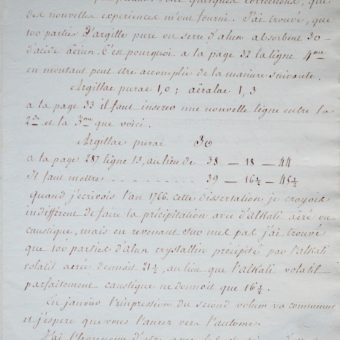 quelques corrections, que
des nouvelles experiences m'ont fourni. J'ai trouvé, que
100 parties d'argille pure en terre d'alun absorbent 30
d'acide aërien. C'est pourquoi a la page 32 la ligne 4me
en montant peut etre accomplie de la maniere suivante.
Argillae purae 1,0; aëratae 1,3
a la page 33 il faut inserer une nouvelle ligne entre la
2de et la 3me que voici.
Argillae purae 30
a la page 287 ligne 13, au lieu de 38 — 18 — 44
il faut mettre 39 — 16½ — 45½
Quand j'ecrivois l'an 1766. cette dissertation je croyois
indifferent de faire la précipitation avec d'Alkali aëré ou
caustique, mais en revenant sur mes pas j'ai trouvé
que 100 parties d'alun crystallin precipité par l'alkali
volatil aeré donnoit 21½, au lieu que l'Alkali volatil
parfaitement caustique ne donnoit que 16½.
En janvier l'impression du second volum va commencer
et j'espere que vous l'aurez vers l'automne.
J'ai l'honneur d'etre avec